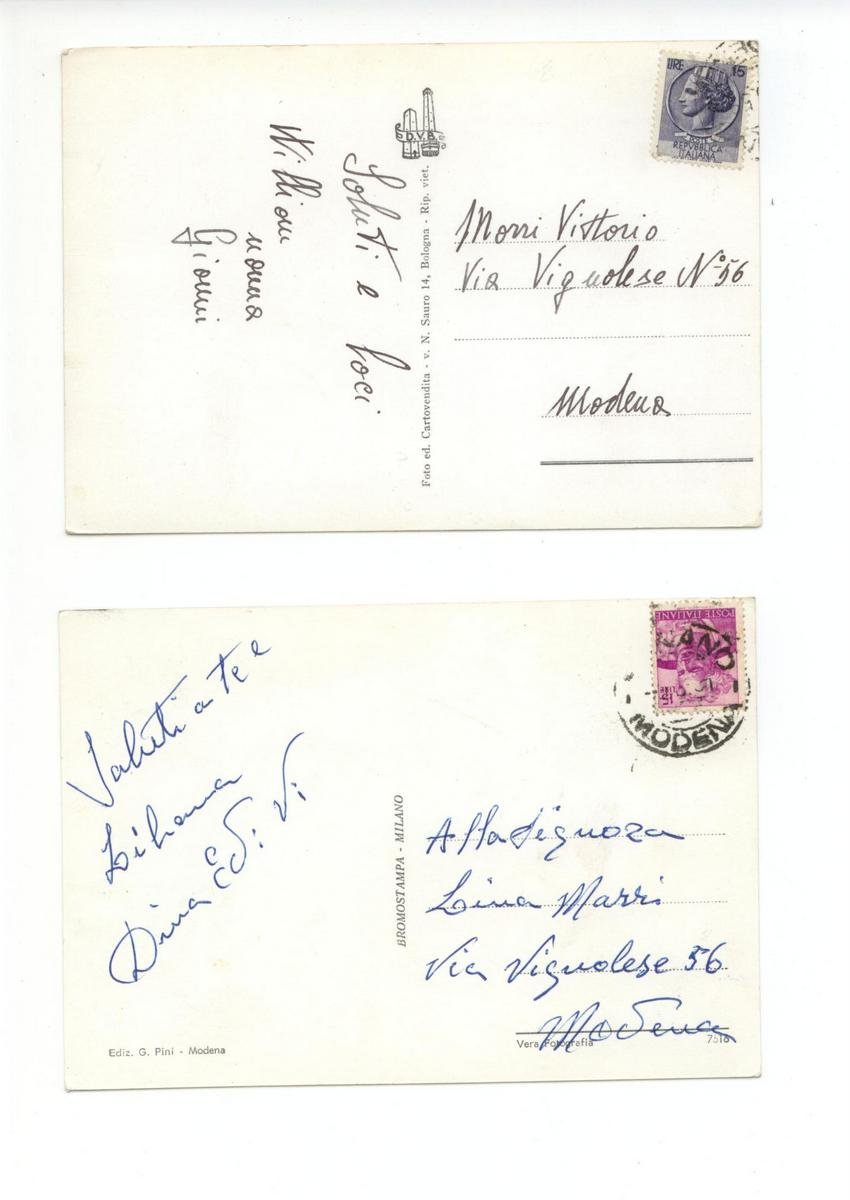 LIRE 15
POSTE
REPVBBLICA
ITALIANA
D.V.B.
Saluti e baci
William
nonna
Gianni
Foto ed. Cartovendita - v. N. Sauro 14, Bologna - Rip. viet.
Morri Vittorio
Via Vignolese N° 56
Modena
POSTE ITALIANE
LIRE 15
MODENA
Saluti a te e
Liliana
Dina Edi Vi
BROMOSTAMPA - MILANO
Alla Signora
Lina Marri
Via Vignolese 56
Modena
Ediz. G. Pini - Modena
Vera Fotografia